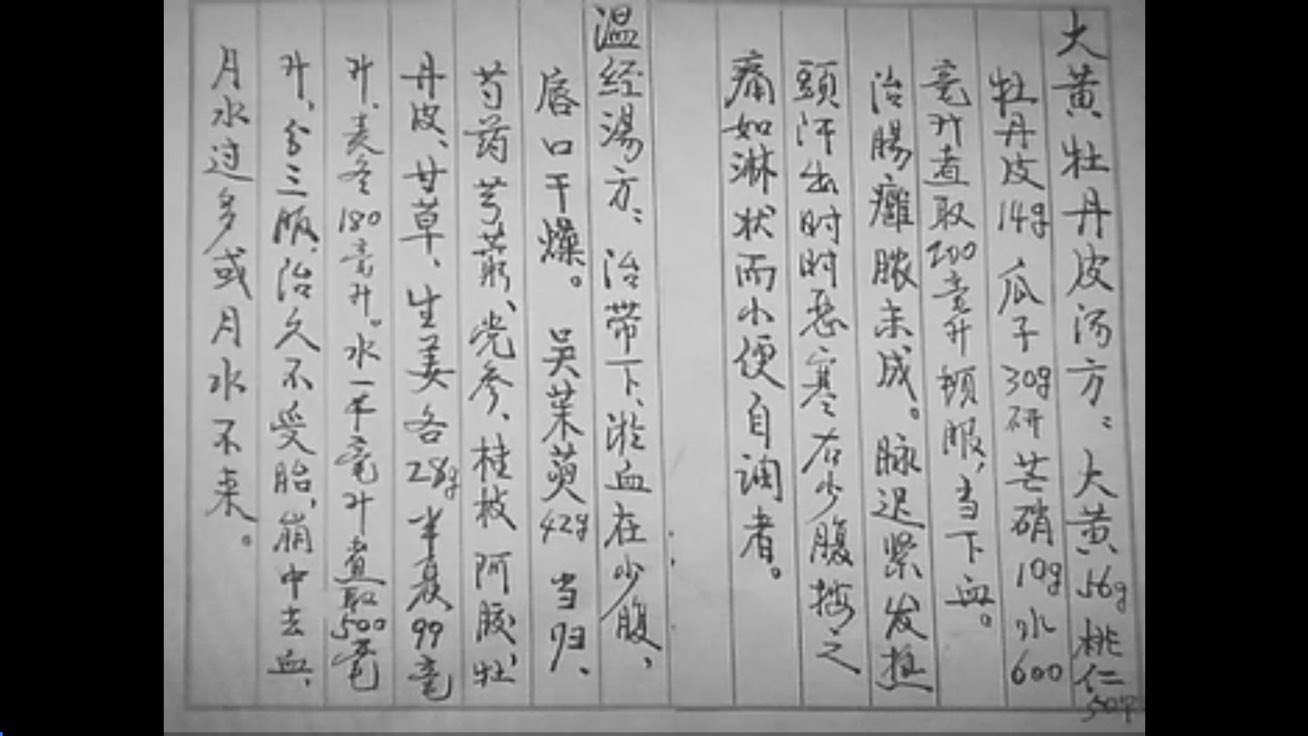 大黄牡丹皮汤方：大黄56g桃仁50个
牡丹皮14g瓜子30g研芒硝10g水600
毫升煮取200毫升顿服，当下血。
治腸癰脓未成。脉迟紧发热
頭汗出时时恶寒右少腹按之
痛如淋状而小便自调者。
温经湯方：治带下、淤血在少腹，
唇口干燥。吴茱萸42g当归、
芍药芎藭、党参、桂枝阿胶、牡
丹皮、甘草、生姜各28g半夏99毫
升、麦冬180毫升。水一千毫升煮取500毫
升，分三服，治久不受胎，崩中去血，
月水过多或月水不来。